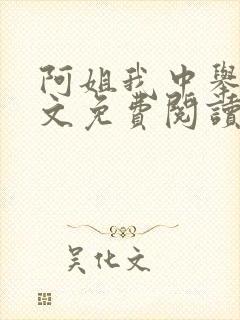 阿姐我中舉
文免費閱讀
吴化文